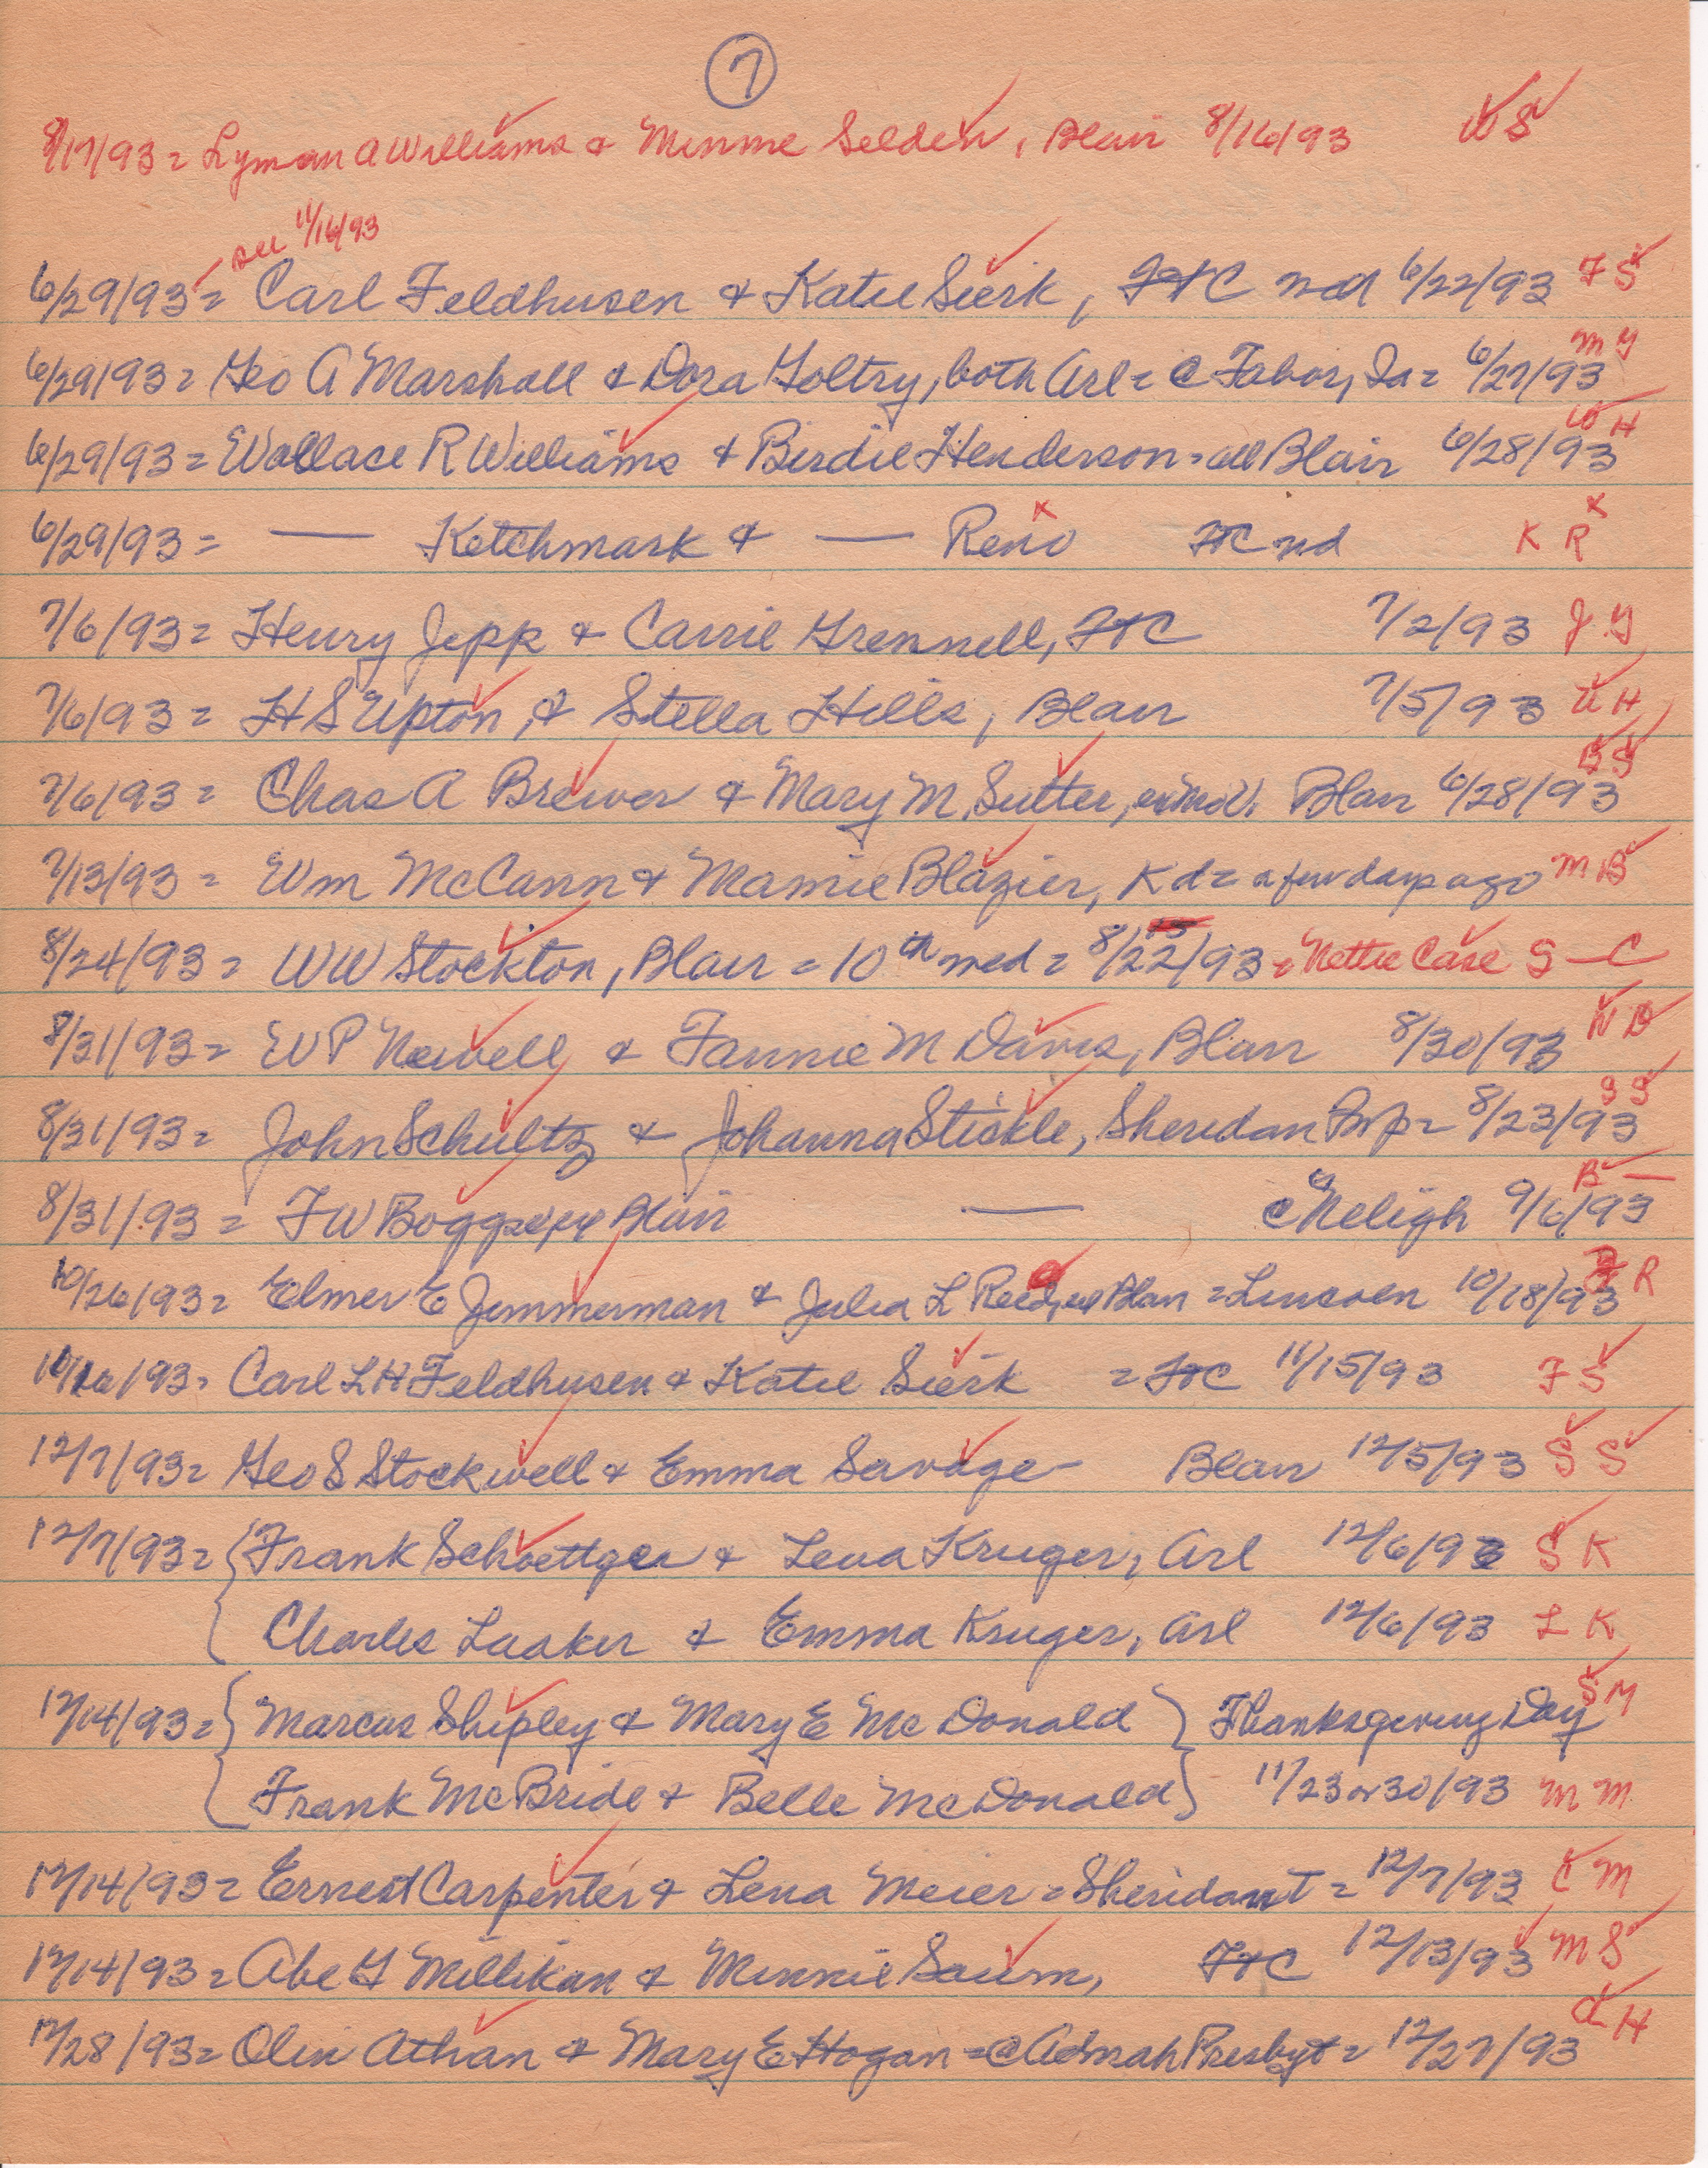 7
8/17/93 = Lyman A Williams & Minnie Selden, Blair 8/16/93 W S
see 11/16/93
6/29/93 = Carl Feldhusen & Katie Sierk, FtC nd 6/22/93 F S
6/29/93 = Geo A Marshall & Dora Goltry, both Arl = @ Tabor, Ia = 6/27/93 M G
6/29/93 = Wallace R Williams & Birdie Henderson = all Blair 6/28/93 W H
6/29/93 = — Ketchmark & — Reno FtC nd K R
7/6/93 = Henry Jepp & Carrie Grennell, FtC 7/2/93 J G
7/6/93 = H S Upton, & Stella Hills, Blair 7/5/93 U H
7/6/93 = Chas A Brewer & Mary M Sutter, Blair 6/28/93 B S
7/13/93 = Wm McCann & Mamie Blazier, Kd = a few days ago M B
8/24/93 = W W Stockton, Blair = 10th wed = 8/22/93 = Nettie Case S – C
8/31/93 = W P Newell & Fannie M Davis, Blair 8/30/93 N D
8/31/93 = John Schultz & Johanna Stickle, Sheridan = 8/23/93 S S
8/31/93 = F W Boggs ex Blair — @ Neligh 9/6/93 B —
10/26/93 = Elmer E Jimmerman & Julia L Reed, ex Blair = Lincoln 10/18/93 R
93 = Carl L H Feldhusen & Katie Sierk = FtC 11/15/93 F S
12/7/93 = Geo S Stockwell & Emma Savage – Blair 12/5/93 S S
12/7/93 = { Frank Schoettger & Lena Kruger, Arl 12/6/93 S K
Charles Laaker & Emma Kruger, Arl 12/6/93 L K
12/14/93 = { Marcus Shipley & Mary E McDonald } Thanksgiving Day S M
Frank McBride & Belle McDonald } 11/23 or 30/93 M M
12/14/93 = Ernest Carpenter & Lena Meier = Sheridan T = 12/7/93 C M
12/14/93 = Abe G Millikan & Minnie Saum, FtC 12/13/93 M S
12/28/93 = Olin Athan & Mary E Hogan = @ Admah Presbyt = 12/27/93 a H